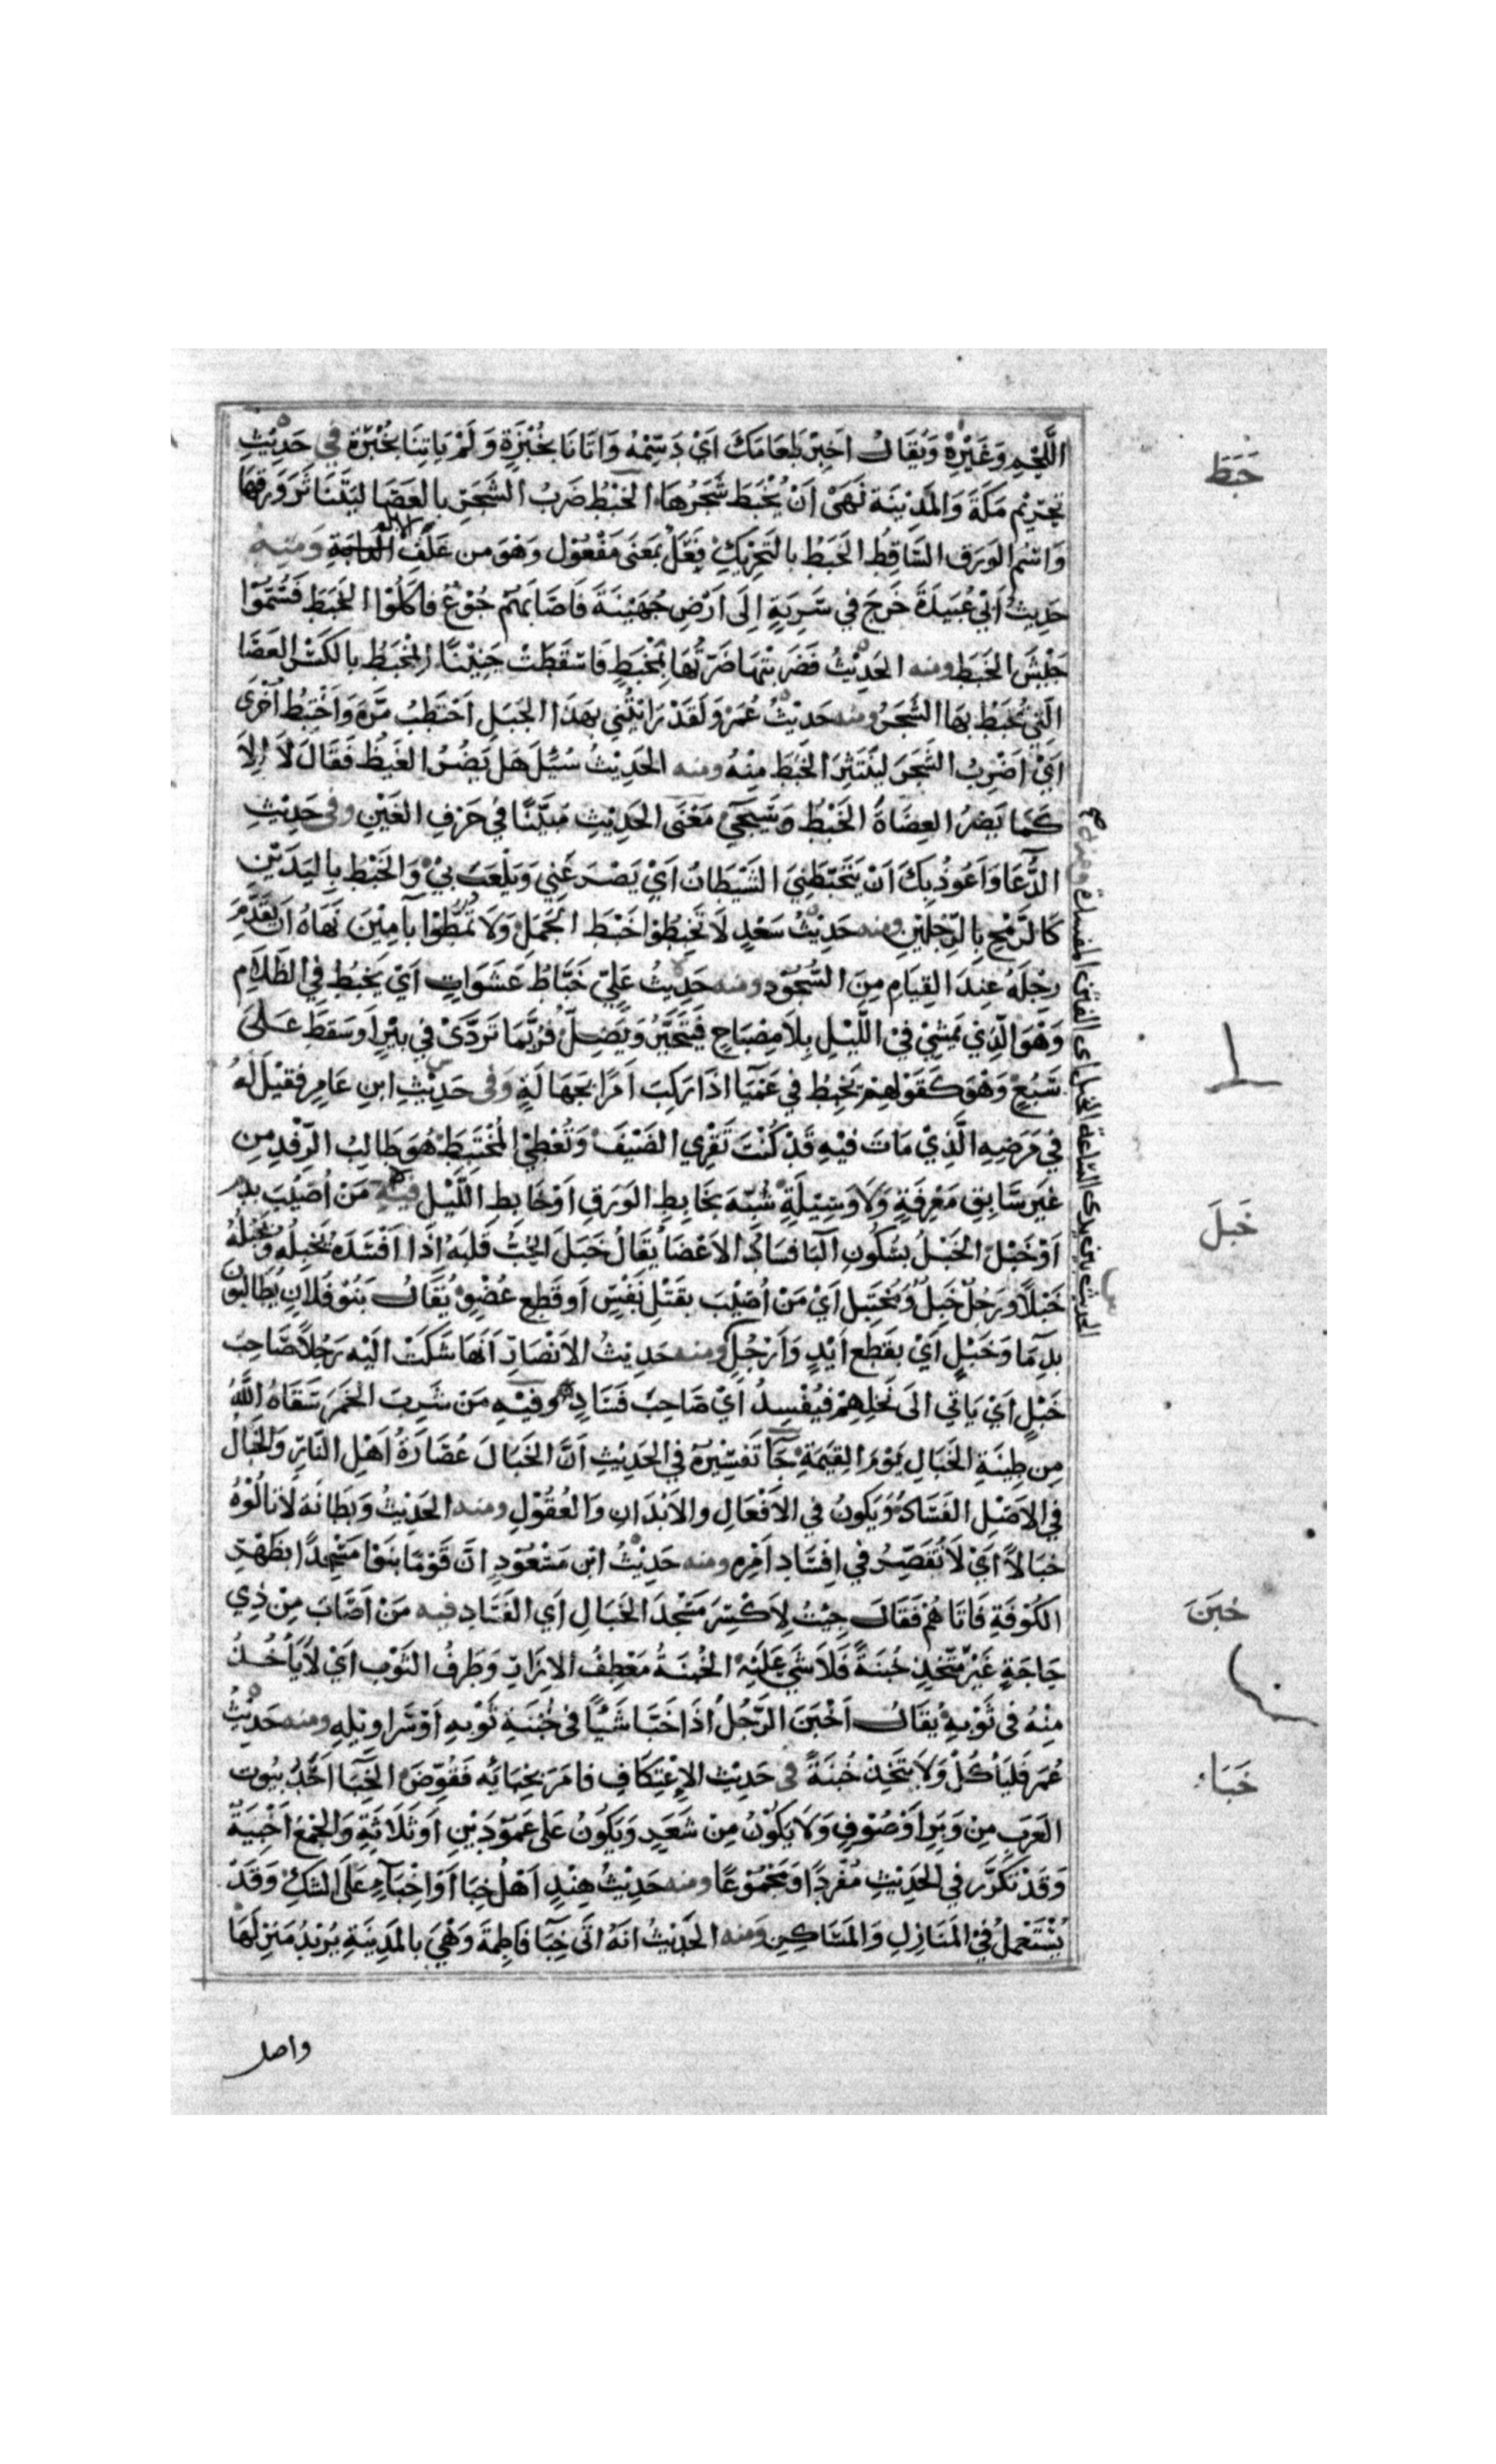 اللَّحْمِ وَغَيْرِهِ وَيُقَالُ اَخْبِرْ طَعَامَكَ اَيْ دَسِّمْهُ وَاَتَانَا بِخُبْزَةٍ وَلَمْ يَاتِنَا بِخُبْرَةٍ فِي حَدِيْثِ
خَبَطَ
تَحْرِيْمِ مَكَّةَ وَالْمَدِيْنَةِ نَهَى اَنْ يُخْبَطَ شَجَرُهَا الخَبْطُ ضَرْبُ الشَّجَرِ بالعَصَا لِيَتَنَاثَرَ وَرَقُهَا
وَاسْمُ الوَرَقِ السَّاقِطِ الخَبَطُ بالتَحْرِيْكِ فَعَلٌ بمَعْنَى مَفْعُوْلٍ وَهْوَ من عَلَفِ الابل وَمِنْهُ
حَدِيثُ اَبِيْ عُبَيدَةَ خَرَجَ في سَرِيَّةٍ اِلَى اَرْضِ جُهَيْنَةَ فَاَصَابَهُمْ جُوْعٌ فاَكَلُوْا الخَبَطَ فَسُمُّوْا
جَيْشَ الخَبَطِ ومنه الحَدِيْثُ فَضَرَبَتْهَا ضَرَّتُهَا بِمِخْبَطٍ فَاَسْقَطَتْ جَنِيْنًا المِخْبَطُ بالكَسْرِ العَصَا
الَّتِي يُخْبَطُ بهَا الشَّجَرُ ومنه حَدِيْثُ عُمَرَ وَلَقَدْ رَاَيْتُنِي بهَذَا الجَبَلِ اَحْتَطِبُ مَرَّةً وَاَخْتَبِطُ اُخْرَى
اَيْ اَضْرِبُ الشَّجَرَ لِيَنْتَثِرَ الخَبَطُ مِنْهُ ومنه الحَدِيْثُ سُئِلَ هَلْ يَضُرُّ الغَبْطُ فَقَالَ لَا اِلَّا
كَمَا يَضُرُّ العِضَاهَ الخَبْطُ وَسَيَجِيْ مَعْنَى الحَدِيْثِ مُبَيَّنًا فِي حَرْفِ الغَيْنِ وفى حَدِيْثِ
الدُّعَا وَاَعُوذُ بِكَ اَنْ يَتَخَبَّطَنِيَ الشَّيْطَانُ اَيْ يَصْرَعَنِي وَيَلْعَبَ بِيْ وَالخَبْطُ بِاليَدَيْنِ
كَالرَّمْحِ بِالرِّجْلَيْنِ ومنه حَدِيْثُ سَعْدٍ لَا تَخْبِطُوْا خَبْطَ الجَمَلِ وَلَا تَمُطُّوْا بآمِيْنَ نَهَاهُ اَنْ يُقَدِّمَ
رِجْلَهُ عِنْدَ القِيَامِ مِنَ السُّجُوْدِ ومنه حَدِيْثُ عَلِيٍّ خَبَّاطُ عَشَوَاتٍ اَيْ يَخْبِطُ فِي الظَّلَامِ
وَهْوَ الَّذِي يَمْشِيْ فِيْ اللَّيْلِ بِلَا مِصْبَاحٍ فَيَتَحَيَّرُ وَيَضِلُّ فَرُبَّمَا تَرَدَّىْ فِي بِئْرٍ اَوْ سَقَطَ عَلَى
سَبُعٍ وَهْوَ كَقَوْلِهِمْ يَخْبِطُ فِي عَمْيَا اذَا رَكِبَ اَمْرًا بجَهَالَةٍ وَفى حَدِيْثِ ابنِ عَامِرٍ فقِيْلَ لَهُ
فِي مَرَضِهِ الَّذِيْ مَاتَ فيْهِ قَدْ كُنْتَ تَقْرِي الضَيْفَ وَتُعْطِيْ المُخْتَبِطَ هُوَ طَالِبُ الرِّفْدِ مِن
غَيْرِ سَابِقِ مَعْرِفَةٍ وَلَا وَسِيْلَةٍ شُبِّهَ بخَابِطِ الوَرَقِ اَوْ خَابِطِ اللَّيْلِ فيه مَنْ اُصِيْبَ بدم
خَبَلَ
اَوْ خَبْلٍ الخَبْلُ بسُكُونِ البَا فَسَادُ الاَعْضَا يُقَالُ خَبَلَ الحُبُّ قَلْبَهُ اِذَا اَفْسَدَهُ يَخْبِلُهُ وَيَخْبُلُهُ
خَبْلًا وَرَجُلٌ خَبِلٌ وَمُخْتَبِلٌ اَيْ مَنْ اُصِيْبَ بقَتْلِ نَفْسٍ اَو قَطْعِ عُضْوٍ يُقَالُ بَنُوْ فُلَانٍ يُطَالِبُونَ
بدِمَا وَخَبْلٍ اَيْ بقَطْعِ اَيْدٍ وَاَرْجُلٍ ومنه حَدِيْثُ الاَنْصَارِ اَنَّهَا شَكَتْ اليْهِ رَجُلًا صَاحِبَ
خَبْلٍ اَيْ يَاتِي الى نَخْلِهِمْ فيُفْسِدُ اَيْ صَاحِبَ فَسَادٍ وفِيْهِ مَنْ شَرِبَ الخَمْرَ سَقَاهُ اللّٰهُ
مِن طِيْنَةِ الخَبَالِ يَوْمَ القِيٰمَةِ جَآ تَفْسِيْرُهُ فِي الحَدِيْثِ اَنَّ الخَبَالَ عُصَارَةُ اَهْلِ النَّارِ وَالخَبَالُ
فِي الاَصْلِ الفَسَادُ وَيَكُونُ فِي الاَفْعَالِ والاَبْدَانِ وَالعُقُوْلِ ومنه الحَدِيْثُ وَبِطَانَة لَا تَالُوْهُ
خَبَالًا اَيْ لَا تُقَصِّرُ في اِفْسَادِ اَمْرِهِ ومنه حَدِيْثُ ابْنِ مَسْعُوْدٍ اِنَّ قَوْمًا بَنَوْا مَسْجِدًا بظَهْرِ
الكُوْفَةِ فَاَتَاهُمْ فَقَالَ جِئْتُ لِاَكْسِرَ مَسْجِدَ الخَبَالِ اَيِ الفَسَادِ فيه مَنْ اَصَابَ مِنْ ذِي
خَبَنَ
حَاجَةٍ غَيْرَ مُتَّخِذٍ خُبْنَةً فَلَا شَيَ عَلَيْهِ الخُبْنَةُ مَعْطِفُ الاِزَارِ وَطَرَفُ الثَوْبِ اَيْ لَا يَاْخُذُ
مِنْهُ فِى ثَوْبِهِ يُقَالُ اَخْبَنَ الرَّجُلُ اذَا خَبَا شَيْئًا فِى خُبْنَةِ ثَوْبِهِ اَوْ سَرَاوِيْلِهِ ومنه حَدِيْثُ
عُمَرَ فَليَاْكُلْ وَلَا يَتَّخِذْ خُبْنَةً فى حَدِيْثِ الاِعْتِكَافِ فاَمَرَ بخِبَايَهِ فَقُوِّضَ الخِبَا اَحَدُ بيُوتِ
خَبَاء
العَرَبِ مِنْ وَبَرٍ اَوْ صُوْفٍ وَلَا يَكُوْنُ مِنْ شَعَرٍ وَيَكُوْنُ عَلى عَمُوْدَيْنِ اَو ثَلَاثَةٍ وَالجَمْعُ اَخْبِيَةٌ
وَقَدْ تَكَرَّرَ فِي الحَدِيْثِ مُفْرَدًا وَمَجْمُوْعًا ومنه حَدِيْثُ هِنْدٍ اَهْلُ خِبَا اَوْ اَخْبَاءٍ عَلَى الشَكِّ وَقَدْ
يُسْتَعْمَلُ فِيْ المَنَازِلِ وَالمَسَاكِنِ وَمنه الحَدِيْثُ اَنَّهُ اَتَى خِبَا فَاطِمَةَ وَهْيَ بالمَدِيْنَةِ يُرِيْدُ مَنْزِلَهَا
واصل